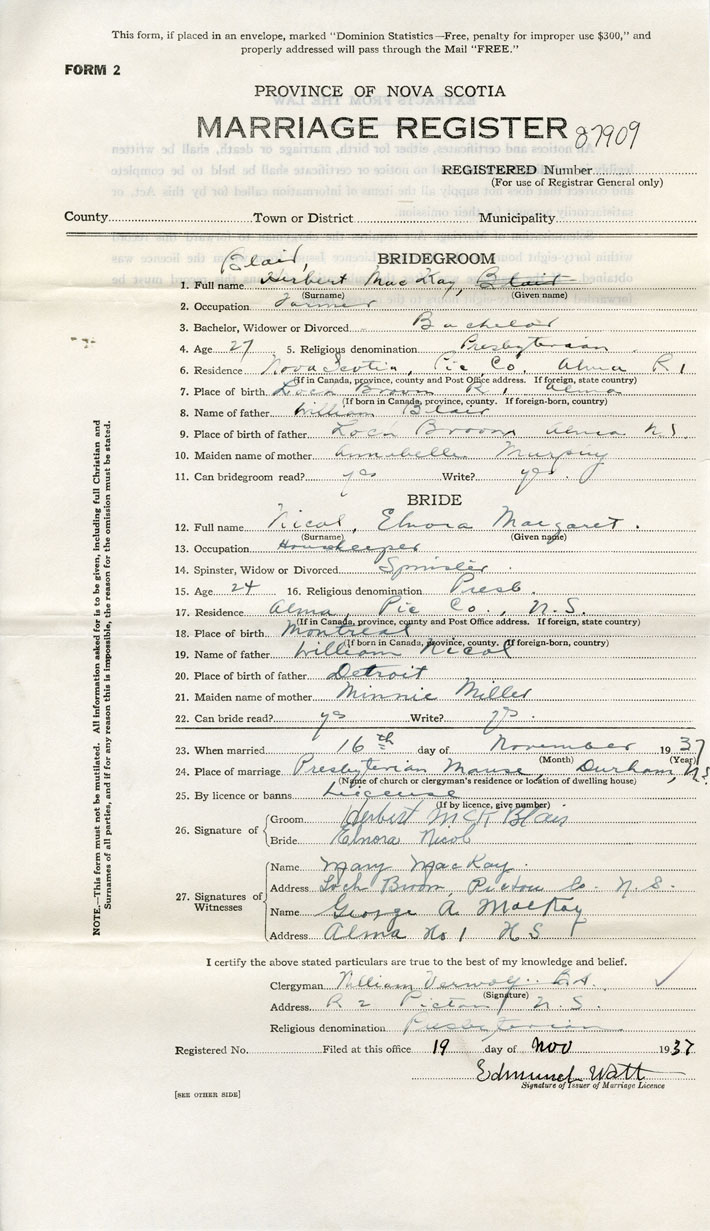 This form, if placed in an envelope, marked "Dominion Statistics—Free, penalty for improper use $300," and
properly addressed will pass through the Mail "FREE."
FORM 2
PROVINCE OF NOVA SCOTIA
MARRIAGE REGISTER 87909
REGISTERED Number
(For use of Registrar General only)
County Town or District Municipality
Blair, BRIDEGROOM
1. Full name Herbert MacKay, Blair
(Surname) (Given name)
2. Occupation Farmer
3. Bachelor, Widower or Divorced Bachelor
4. Age 27 5. Religious denomination Presbyterian
6. Residence Nova Scotia, Pic Co. Alma R 1
(If in Canada, province, county and Post Office address. If foreign, state country)
7. Place of birth Loch Broom R 1, Alma
(If born in Canada, province, county. If foreign-born, country)
8. Name of father William Blair
9. Place of birth of father Loch Broom Alma N.S.
10. Maiden name of mother Annabelle Murphy
11. Can bridegroom read? yes Write? yes.
BRIDE
12. Full name Nicol, Elnora Margaret.
(Surname) (Given name)
13. Occupation Housekeeper
14. Spinster, Widow or Divorced Spinster.
15. Age 24 16. Religious denomination Presb.
17. Residence Alma, Pic Co., N.S.
(If in Canada, province, county and Post Office address. If foreign, state country)
18. Place of birth Montreal
(If born in Canada, province, county. If foreign-born, country)
19. Name of father William Nicol
20. Place of birth of father Detroit
21. Maiden name of mother Minnie Miller
22. Can bride read? yes Write? yes.
23. When married 16th day of November 1937
(Month) (Year)
24. Place of marriage Presbyterian Manse, Durham, N.S.
(Name of church or clergyman's residence or location of dwelling house)
25. By licence or banns License
(If by licence, give number)
26. Signature of Groom Herbert McK Blair
Bride Elnora Nicol
27. Signatures of Witnesses Name Mary MacKay.
Address Loch Broom, Pictou Co. N.S.
Name George A. MacKay
Address Alma No 1 N S
I certify the above stated particulars are true to the best of my knowledge and belief.
Clergyman William Verwolf. B.A.
(Signature)
Address R 2 Pictou, N.S.
Religious denomination Presbyterian
Registered No. Filed at this office 19 day of Nov 1937
Edmund Watt
Signature of Issuer of Marriage Licence
[SEE OTHER SIDE]
NOTE.—This form must not be mutilated. All information asked for is to be given, including full Christian and
Surnames of all parties, and if for any reason this is impossible, the reason for the omission must be stated.